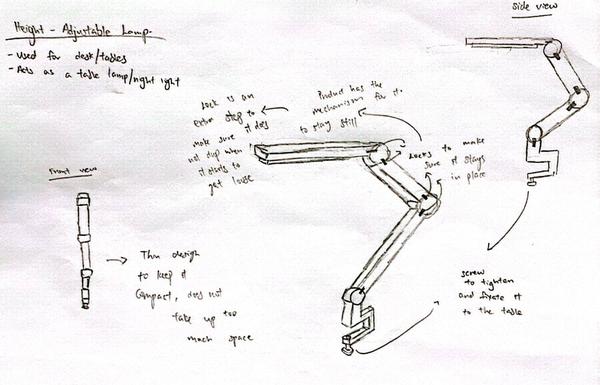 Height - Adjustable Lamp
- Used for desk/tables
- Acts as a table lamp/night light
Side view
Lock is an
extra step to
make sure it does
not dip when
it starts to
get loose
Product has the
mechanism for it
to stay still
Locks to make
sure it stays
in place
Front view
Thin design
to keep it
compact, does not
take up too
much space
screw
to tighten
and fixate it
to the table